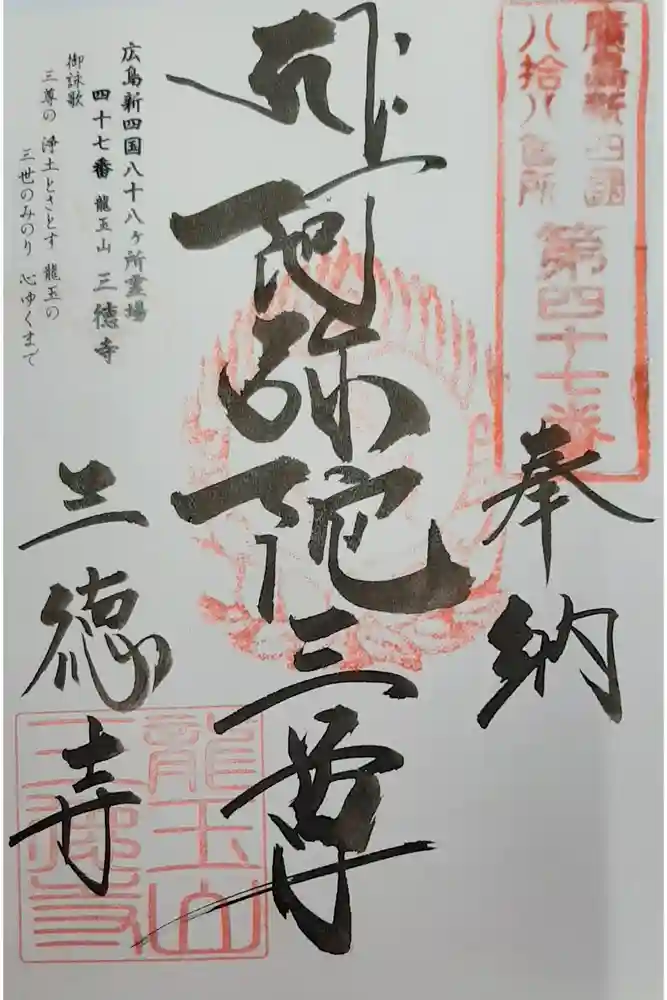 廣島新四国
八拾八箇所
第四十七番
奉納
阿弥陀三尊
三徳寺
龍玉山
三徳寺
広島新四国八十八ヶ所霊場
四十七番 龍玉山 三徳寺
御詠歌
三尊の 浄土とさとす 龍玉の
三世のみのり 心ゆくまで